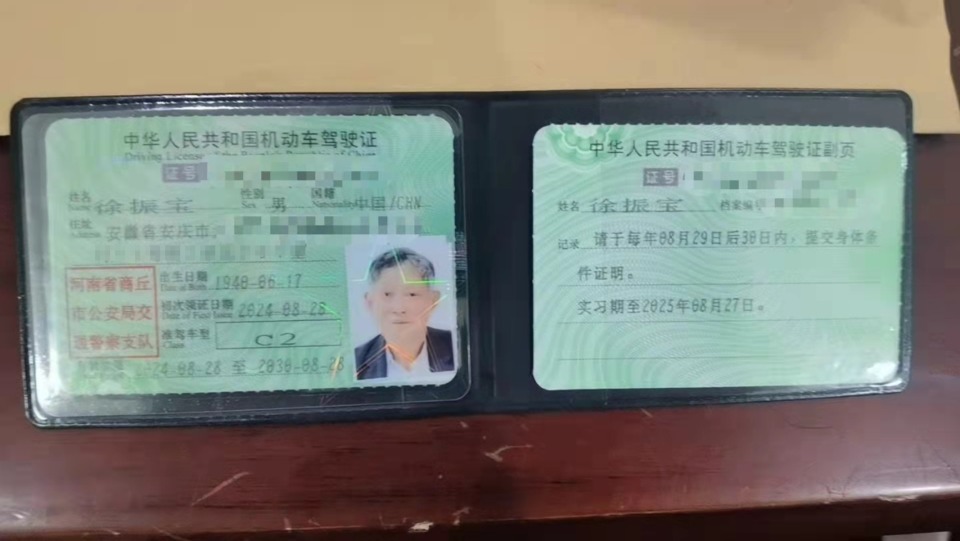 中华人民共和国机动车驾驶证
Driving License
证号
姓名 Name 徐振宝 性别 Sex 男 国籍 Nationality 中国/CHN
住址 Address 安徽省安庆市
河南省商丘
市公安局交
通警察支队
出生日期 Date of Birth 1940-06-17
初次领证日期 Date of First Issue 2024-08-28
准驾车型 Class C2
2024-08-28 至 2030-08-28
中华人民共和国机动车驾驶证副页
证号
姓名 徐振宝 档案编号
记录 请于每年08月29日后30日内，提交身体条
件证明。
实习期至2025年08月27日。